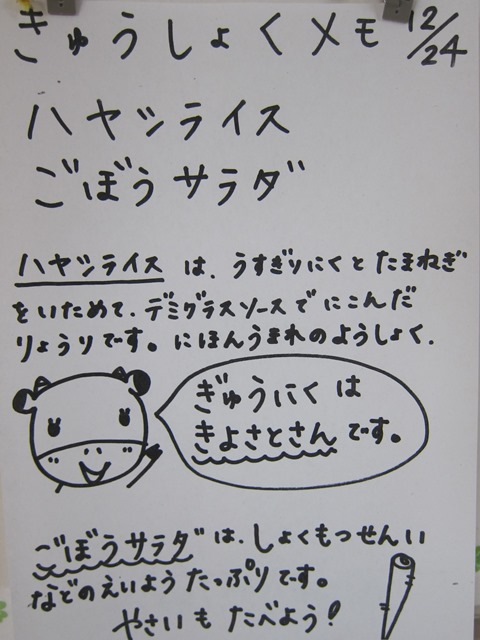 きゅうしょくメモ 12/24
ハヤシライス
ごぼうサラダ
ハヤシライス は、うすぎりにくとたまねぎ
をいためて、デミグラスソースでにこんだ
りょうりです。にほんうまれのようしょく.
ぎゅうにくは
きよさとさんです。
ごぼうサラダは、しょくもつせんい
などのえいようたっぷりです。
やさいもたべよう!